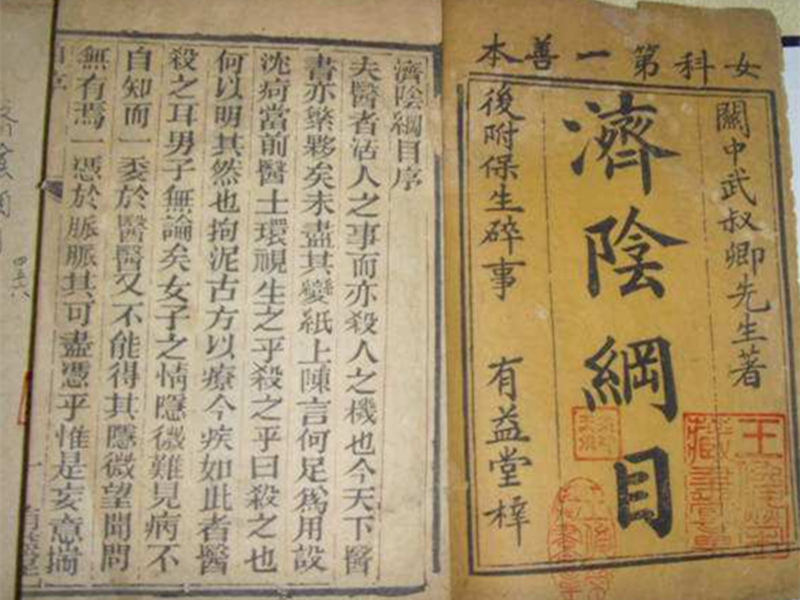 女科第一善本
關中武叔卿先生著
濟陰綱目
後附保生碎事 有益堂梓
濟陰綱目序
夫醫者活人之事而亦殺人之機也今天下醫
書亦綦夥矣未盡其變紙上陳言何足爲用設
沈疴當前醫士環視生之乎殺之乎曰殺之也
何以明其然也拘泥古方以療今疾如此者醫
殺之耳男子無論矣女子之情隱微難見病不
自知而一委於醫醫又不能得其隱微望聞問
無有焉一憑於脈脈其可盡憑乎惟是妄意揣
自序 一
四五六